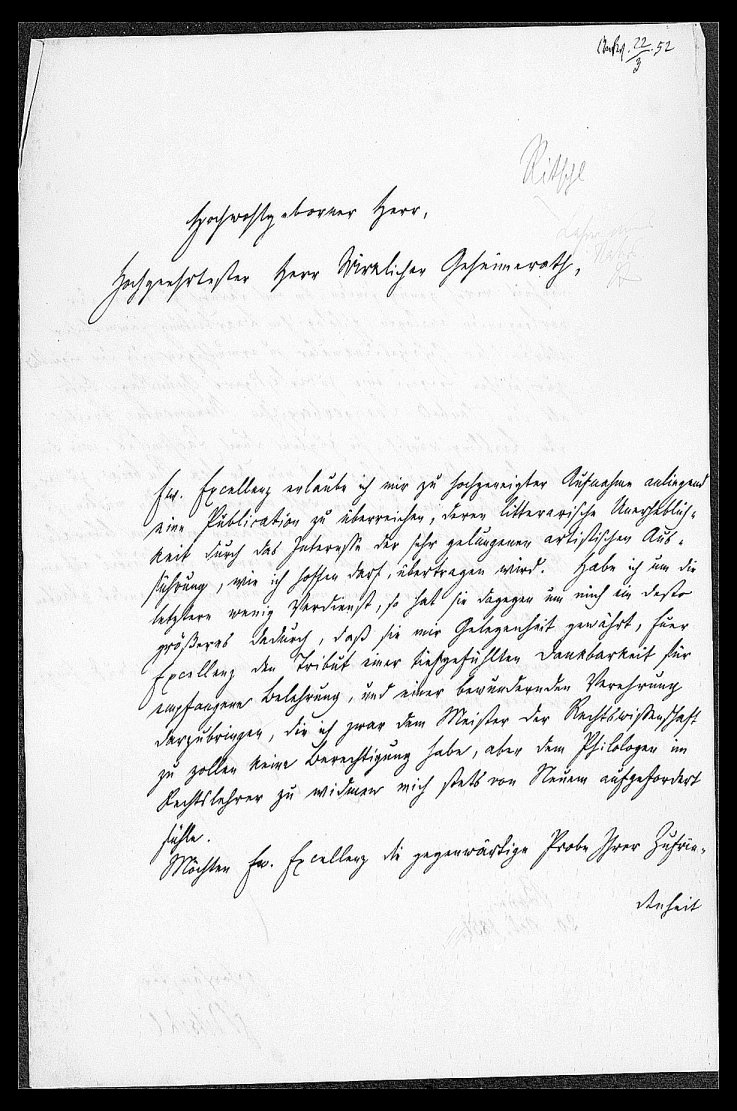 22/3. 52
Ritschl
Hochwohlgeborner Herr,
Hochgeehrtester Herr Wirklicher Geheimerath,
Ew. Excellenz erlaube ich mir zu hochgeneigter Aufnahme anliegend
eine Publication zu überreichen, deren litterarische Unerheblich-
keit durch das Interesse der sehr gelungenen artistischen Aus-
führung, wie ich hoffen darf, übertragen wird. Habe ich um die
letztere wenig Verdienst, so hat sie dagegen um mich ein desto
größeres dadurch, daß sie mir Gelegenheit gewährt, Euer
Excellenz den Tribut einer tiefgefühlten Dankbarkeit für
empfangene Belehrung, und einer bewundernden Verehrung
darzubringen, die ich zwar dem Meister der Rechtswissenschaft
zu zollen keine Berechtigung habe, aber dem Philologen im
Rechtslehrer zu widmen mich stets von Neuem aufgefordert
fühle.
Möchten Ew. Excellenz die gegenwärtige Probe Ihrer Zufrie-
denheit